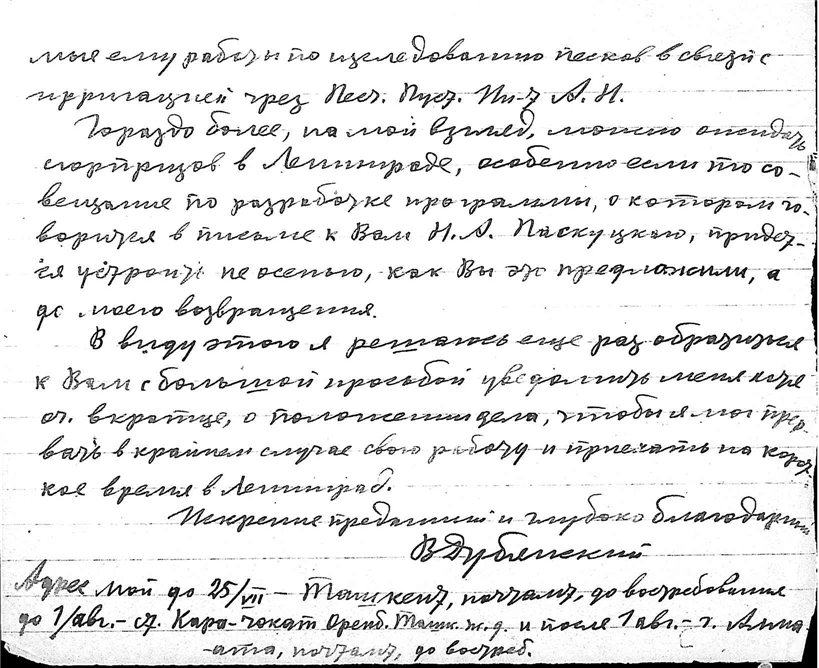 мые ему работы по изследованию песков в связи с
ирригацией чрез Песч. Пуст. Ин-т А. Н.
Гораздо более, на мой взгляд, можно ожидать
сюрпризов в Ленинграде, особенно если то со-
вещание по разработке программы, о котором го-
ворится в письме к Вам Н. А. Паскуцкаго, придет-
ся устроить не осенью, как Вы это предложили, а
до моего возвращения.
В виду этого я решаюсь еще раз обратиться
к Вам с большой просьбой уведомить меня хотя
вкратце, о положении дела, чтобы я мог прер-
вать в крайнем случае свою работу и приехать на корот-
кое время в Ленинград.
Искренне преданный и глубоко благодарный
В Дубянский
Адрес мой до 25/VII – Ташкент, почтамт, до востребования
до 1/авг. – ст. Кара-чокат Оренб. Ташк. ж. д. и после 1 авг. – г. Алма-
-ата, почтамт, до востреб.